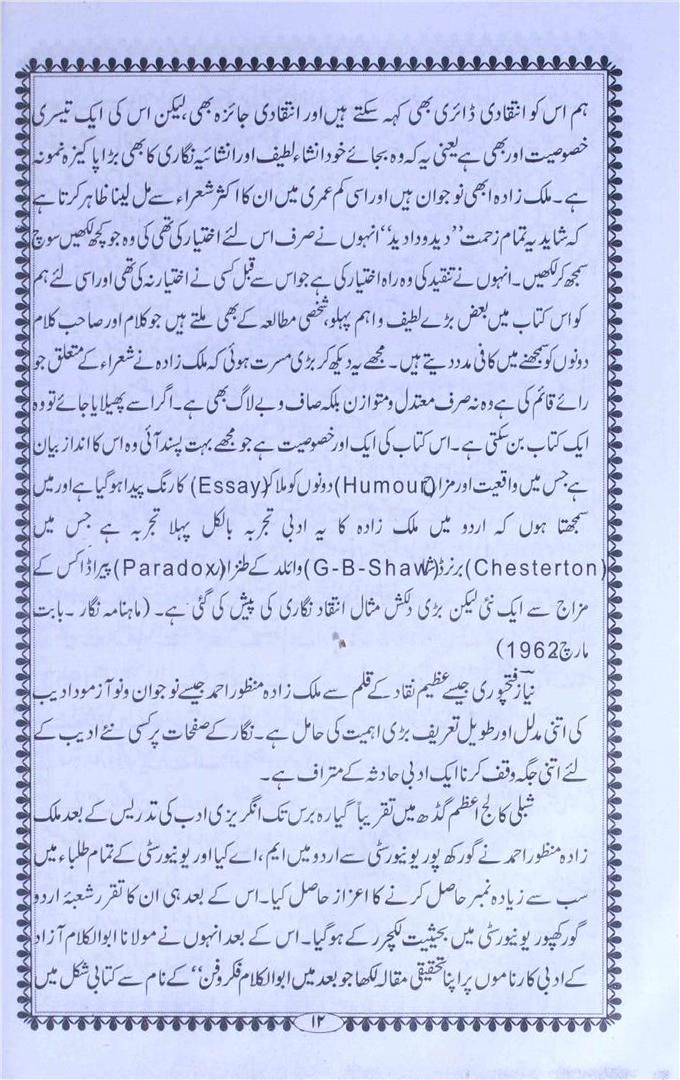 ہم اس کو انتقادی ڈائری بھی کہہ سکتے ہیں اور انتقادی جائزہ بھی، لیکن اس کی ایک تیسری
خصوصیت اور بھی ہے یعنی یہ کہ وہ بجائے خود انشاء لطیف اور انشائیہ نگاری کا بھی بڑا پاکیزہ نمونہ
ہے۔ ملک زادہ ابھی نوجوان ہیں اور اسی کم عمری میں ان کا اکثر شعراء سے مل لینا ظاہر کرتا ہے
کہ شاید یہ تمام زحمت ’’دید و دادید‘‘ انہوں نے صرف اس لئے اختیار کی تھی کی وہ جو کچھ لکھیں سوچ
سمجھ کر لکھیں۔ انہوں نے تنقید کی وہ راہ اختیار کی ہے جو اس سے قبل کسی نے اختیار نہ کی تھی اور اسی لئے ہم
کو اس کتاب میں بعض بڑے لطیف و اہم پہلو، شخصی مطالعہ کے بھی ملتے ہیں جو کلام اور صاحب کلام
دونوں کو سمجھنے میں کافی مدد دیتے ہیں۔ مجھے یہ دیکھ کر بڑی مسرت ہوئی کہ ملک زادہ نے شعراء کے متعلق جو
رائے قائم کی ہے وہ نہ صرف معتدل و متوازن بلکہ صاف و بے لاگ بھی ہے۔ اگر اسے پھیلایا جائے تو وہ
ایک کتاب بن سکتی ہے۔ اس کتاب کی ایک اور خصوصیت ہے جو مجھے بہت پسند آئی وہ اس کا انداز بیان
ہے جس میں واقعیت اور مزاح (Humour) دونوں کو ملا کر (Essay) کا رنگ پیدا ہو گیا ہے اور میں
سمجھتا ہوں کہ اردو میں ملک زادہ کا یہ ادبی تجربہ بالکل پہلا تجربہ ہے جس میں
(Chesterton) برنرڈشا (G-B-Shaw) وائلد کے طنز اور (Paradox) پیراڈاکس کے
مزاج سے ایک نئی لیکن بڑی دلکش مثال انتقاد نگاری کی پیش کی گئی ہے۔ (ماہنامہ نگار۔ بابت
مارچ 1962)
نیاز فتحپوری جیسے عظیم نقاد کے قلم سے ملک زادہ منظور احمد جیسے نوجوان و نو آزمود ادیب
کی اتنی مدلل اور طویل تعریف بڑی اہمیت کی حامل ہے۔ نگار کے صفحات پر کسی نئے ادیب کے
لئے اتنی جگہ وقف کرنا ایک ادبی حادثہ کے متراف ہے۔
شبلی کالج اعظم گڈھ میں تقریباً گیارہ برس تک انگریزی ادب کی تدریس کے بعد ملک
زادہ منظور احمد نے گورکھ پور یونیورسٹی سے اردو میں ایم، اے کیا اور یونیورسٹی کے تمام طلباء میں
سب سے زیادہ نمبر حاصل کرنے کا اعزاز حاصل کیا۔ اس کے بعد ہی ان کا تقرر شعبۂ اردو
گورکھپور یونیورسٹی میں بحیثیت لکچرر کے ہو گیا۔ اس کے بعد انہوں نے مولانا ابوالکلام آزاد
کے ادبی کارناموں پر اپنا تحقیقی مقالہ لکھا جو بعد میں ابوالکلام فکر و فن‘‘ کے نام سے کتابی شکل میں
۱۲